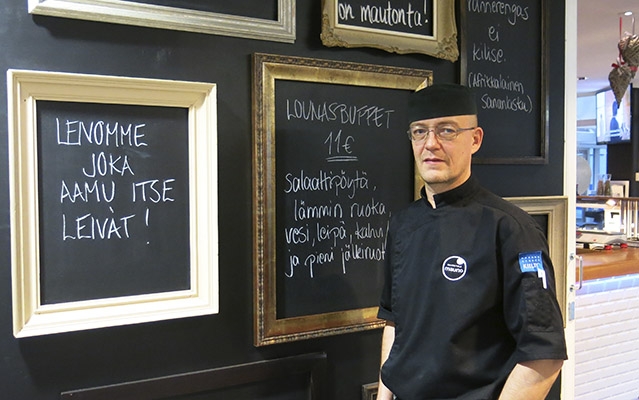 on mautonta!
rannerengas
ei
kilise.
(Afrikkalainen
sananlasku)
LENOMME
JOKA
AAMU ITSE
LEIVÄT!
LOUNASBUFFET
11€
salaattipöytä,
lämmin ruoka,
vesi, leipä, kahvi
ja pieni jälkiruok
mauno